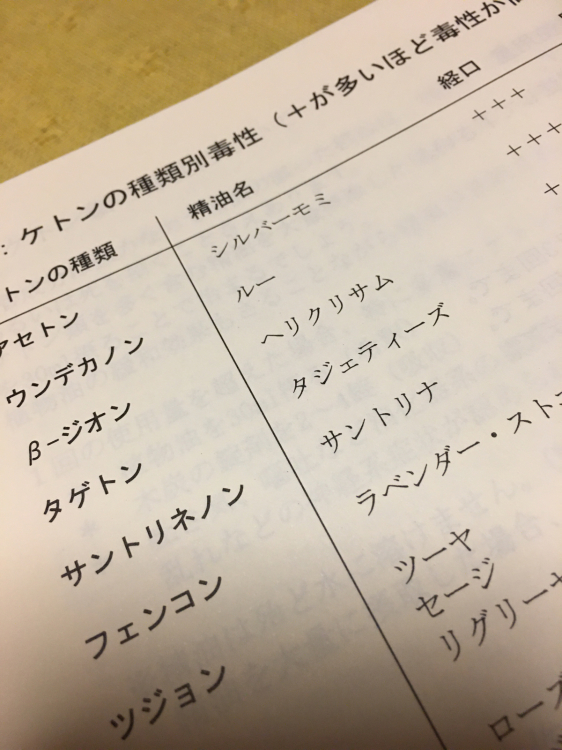 ：ケトンの種類別毒性（＋が多いほど毒性が
トンの種類 精油名 経口
アセトン シルバーモミ +++
ウンデカノン ルー +++
β-ジオン ヘリクリサム +
タゲトン タジェティーズ
サントリネノン サントリナ
フェンコン ラベンダー・スト
ツジョン ツーヤ
セージ
リグリーナ
ローズ